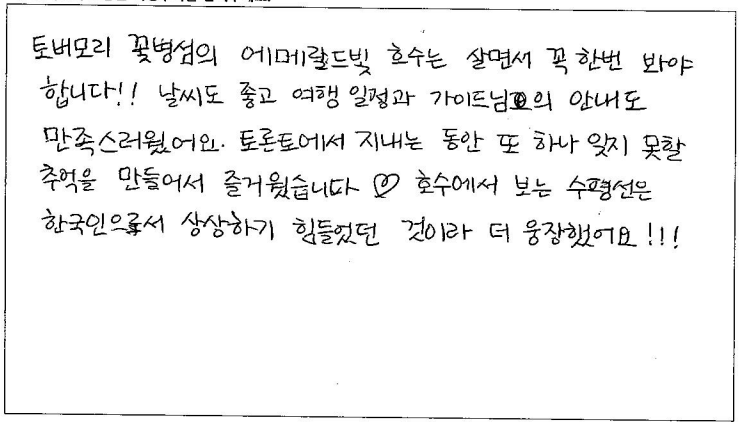 토버모리 꽃병섬의 에메랄드빛 호수는 살면서 꼭 한번 봐야
합니다!! 날씨도 좋고 여행 일정과 가이드님의 안내도
만족스러웠어요. 토론토에서 지내는 동안 또 하나 잊지 못할
추억을 만들어서 즐거웠습니다 ♡ 호수에서 보는 수평선은
한국인으로서 상상하기 힘들었던 것이라 더 웅장했어요!!!